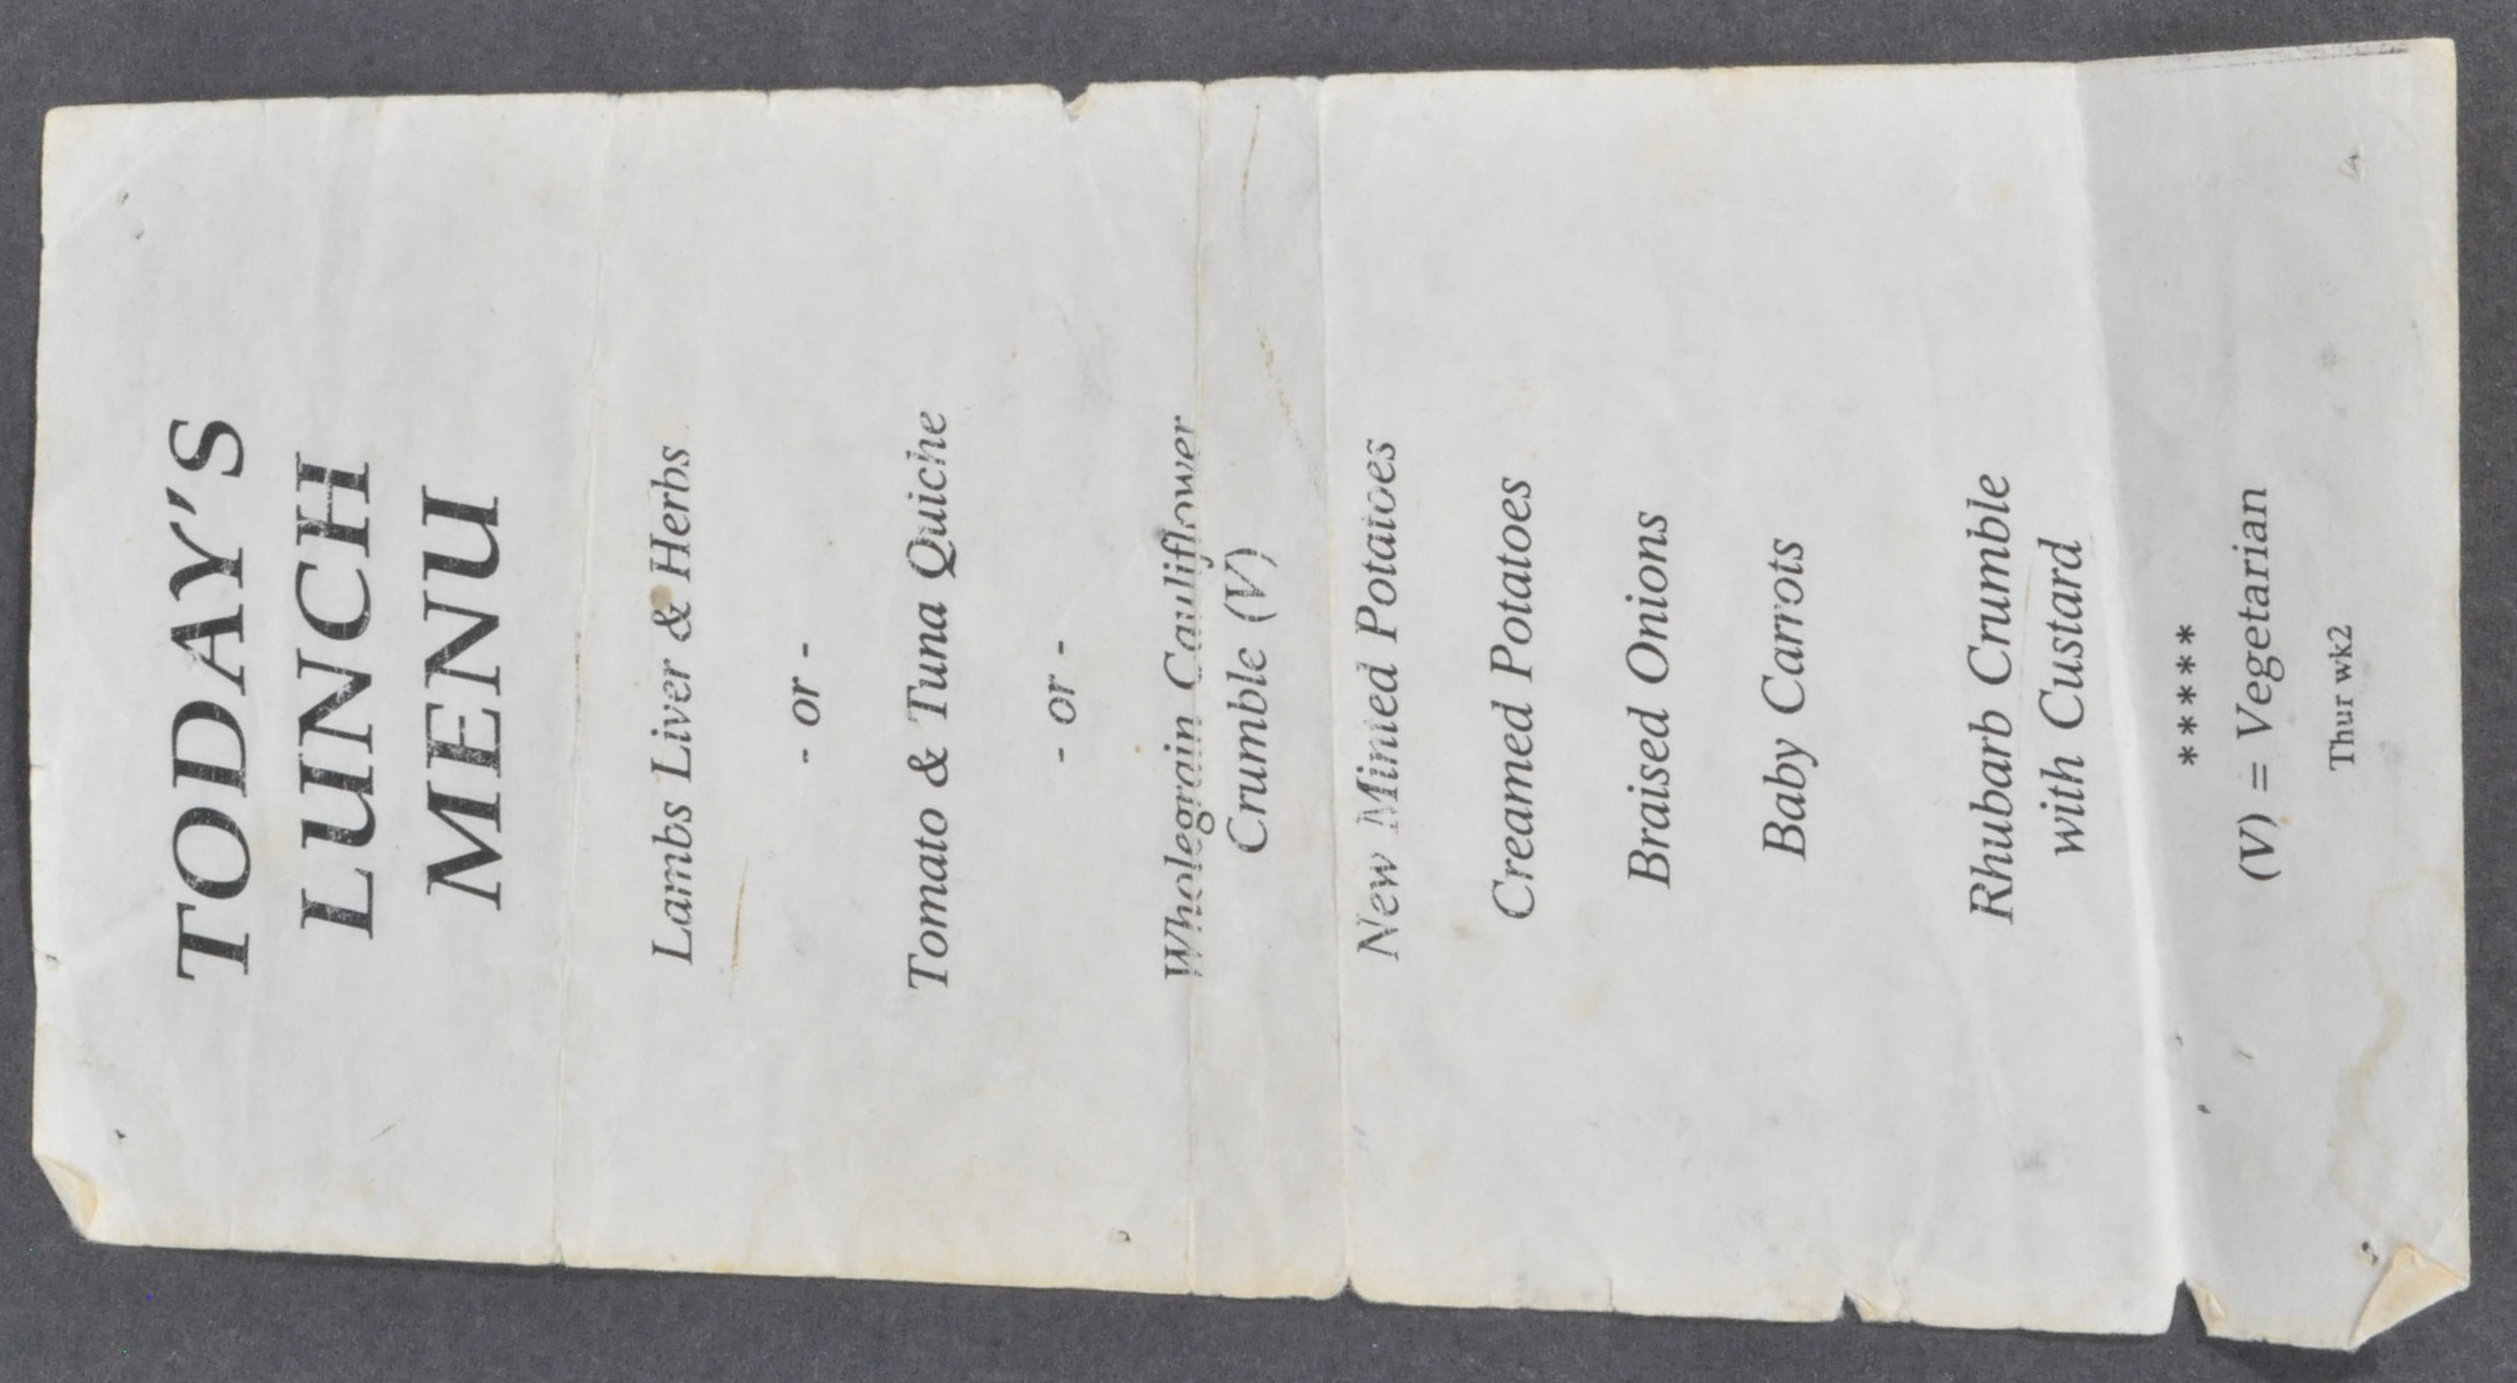 TODAY'S
LUNCH
MENU
Lambs Liver & Herbs
- or -
Tomato & Tuna Quiche
- or -
Wholegrain Cauliflower
Crumble (V)
New Minted Potatoes
Creamed Potatoes
Braised Onions
Baby Carrots
Rhubarb Crumble
with Custard
*****
(V) = Vegetarian
Thur wk2